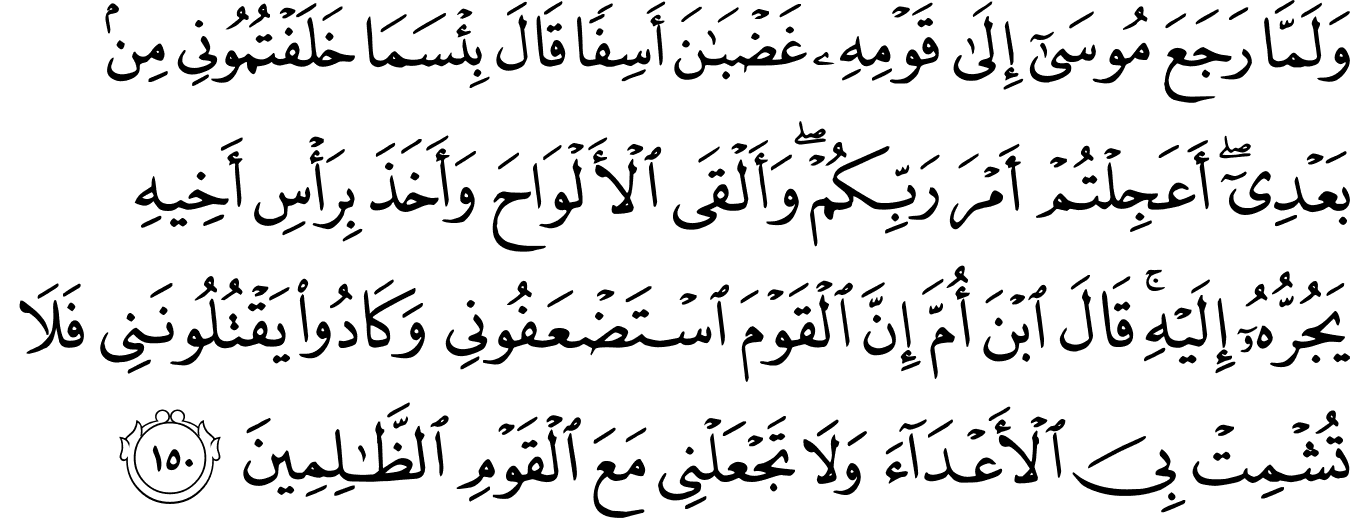 وَلَمَّا رَجَعَ مُوسَىٰٓ إِلَىٰ قَوْمِهِۦ غَضْبَـٰنَ أَسِفًا قَالَ بِئْسَمَا خَلَفْتُمُونِى مِنۢ
بَعْدِىٓ ۖ أَعَجِلْتُمْ أَمْرَ رَبِّكُمْ ۖ وَأَلْقَى ٱلْأَلْوَاحَ وَأَخَذَ بِرَأْسِ أَخِيهِ
يَجُرُّهُۥٓ إِلَيْهِ ۚ قَالَ ٱبْنَ أُمَّ إِنَّ ٱلْقَوْمَ ٱسْتَضْعَفُونِى وَكَادُوا۟ يَقْتُلُونَنِى فَلَا
تُشْمِتْ بِىَ ٱلْأَعْدَآءَ وَلَا تَجْعَلْنِى مَعَ ٱلْقَوْمِ ٱلظَّـٰلِمِينَ ١٥٠